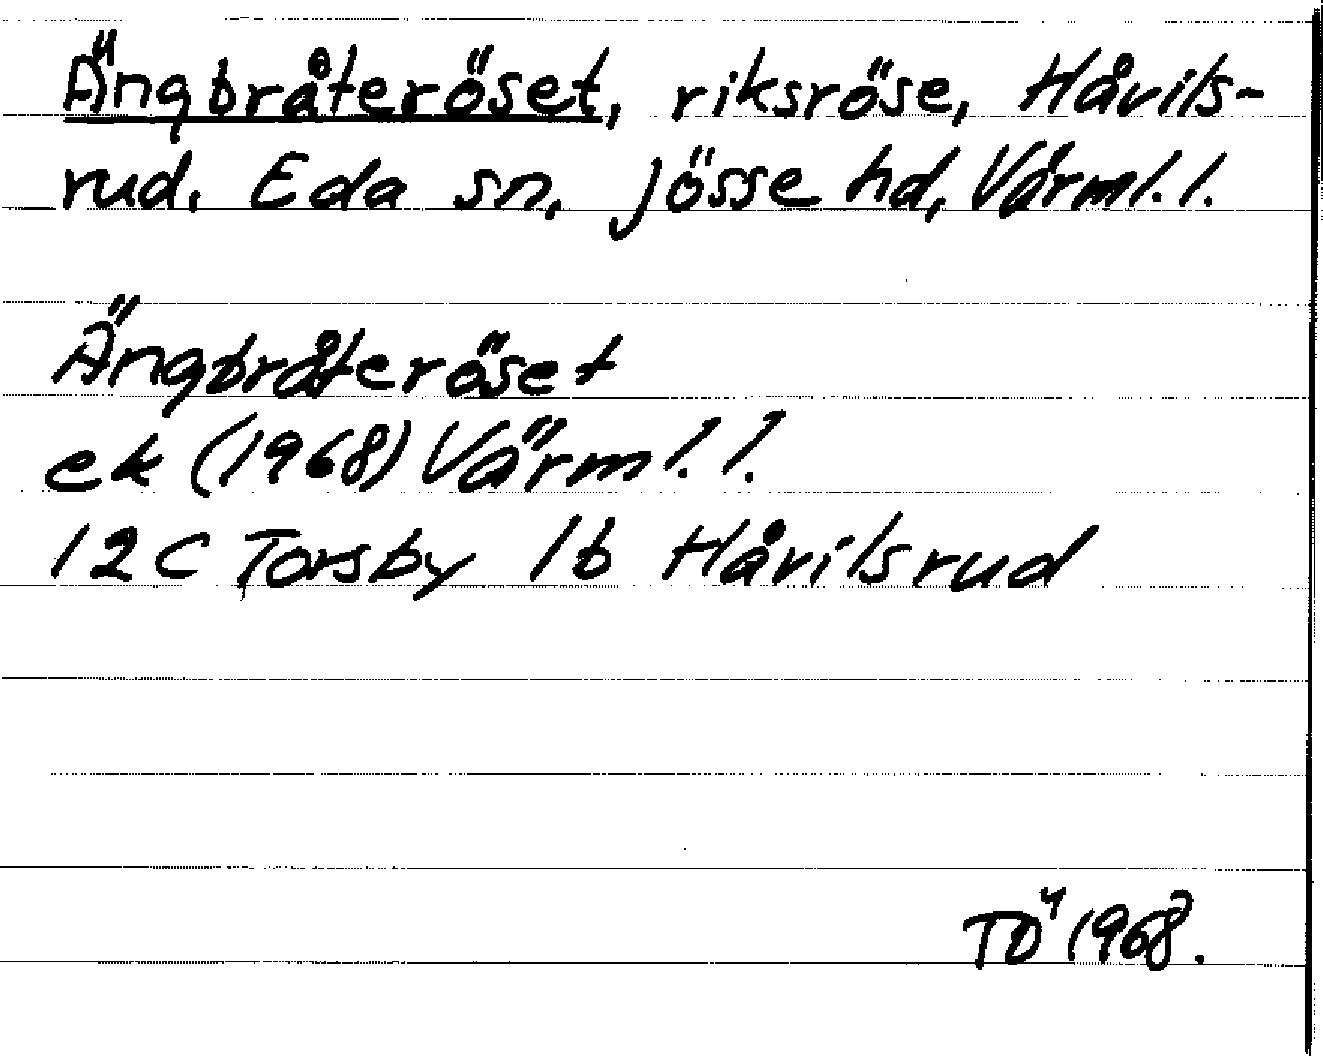 Ängbråteröset, riksröse, Håvils-
rud. Eda sn, Jösse hd, Värml. l.
Ängbråteröset
ek (1968) Värml. l.
12C Torsby 1b Håvilsrud
TÖ 1968.